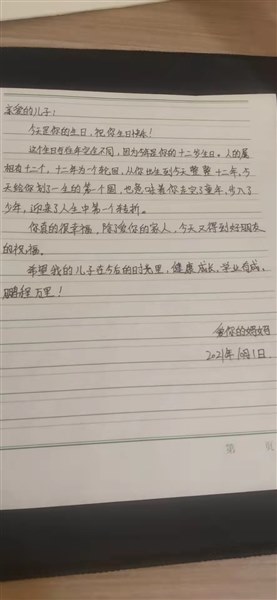 亲爱的儿子:
今天是你的生日,祝你生日快乐!
这个生日与往年完全不同,因为今天是你的十二岁生日。人的属
相有十二个,十二年为一个轮回,从你出生到今天整整十二年,今
天给你划了一生的第一个圆,也意味着你走完了童年,步入了
少年,迎来了人生中第一个转折。
你真的很幸福,除了爱你的家人,今天又得到好朋友
的祝福。
希望我的儿子在今后的时光里,健康成长,学业有成,
鹏程万里!
爱你的妈妈
2021年1月1日
第 页